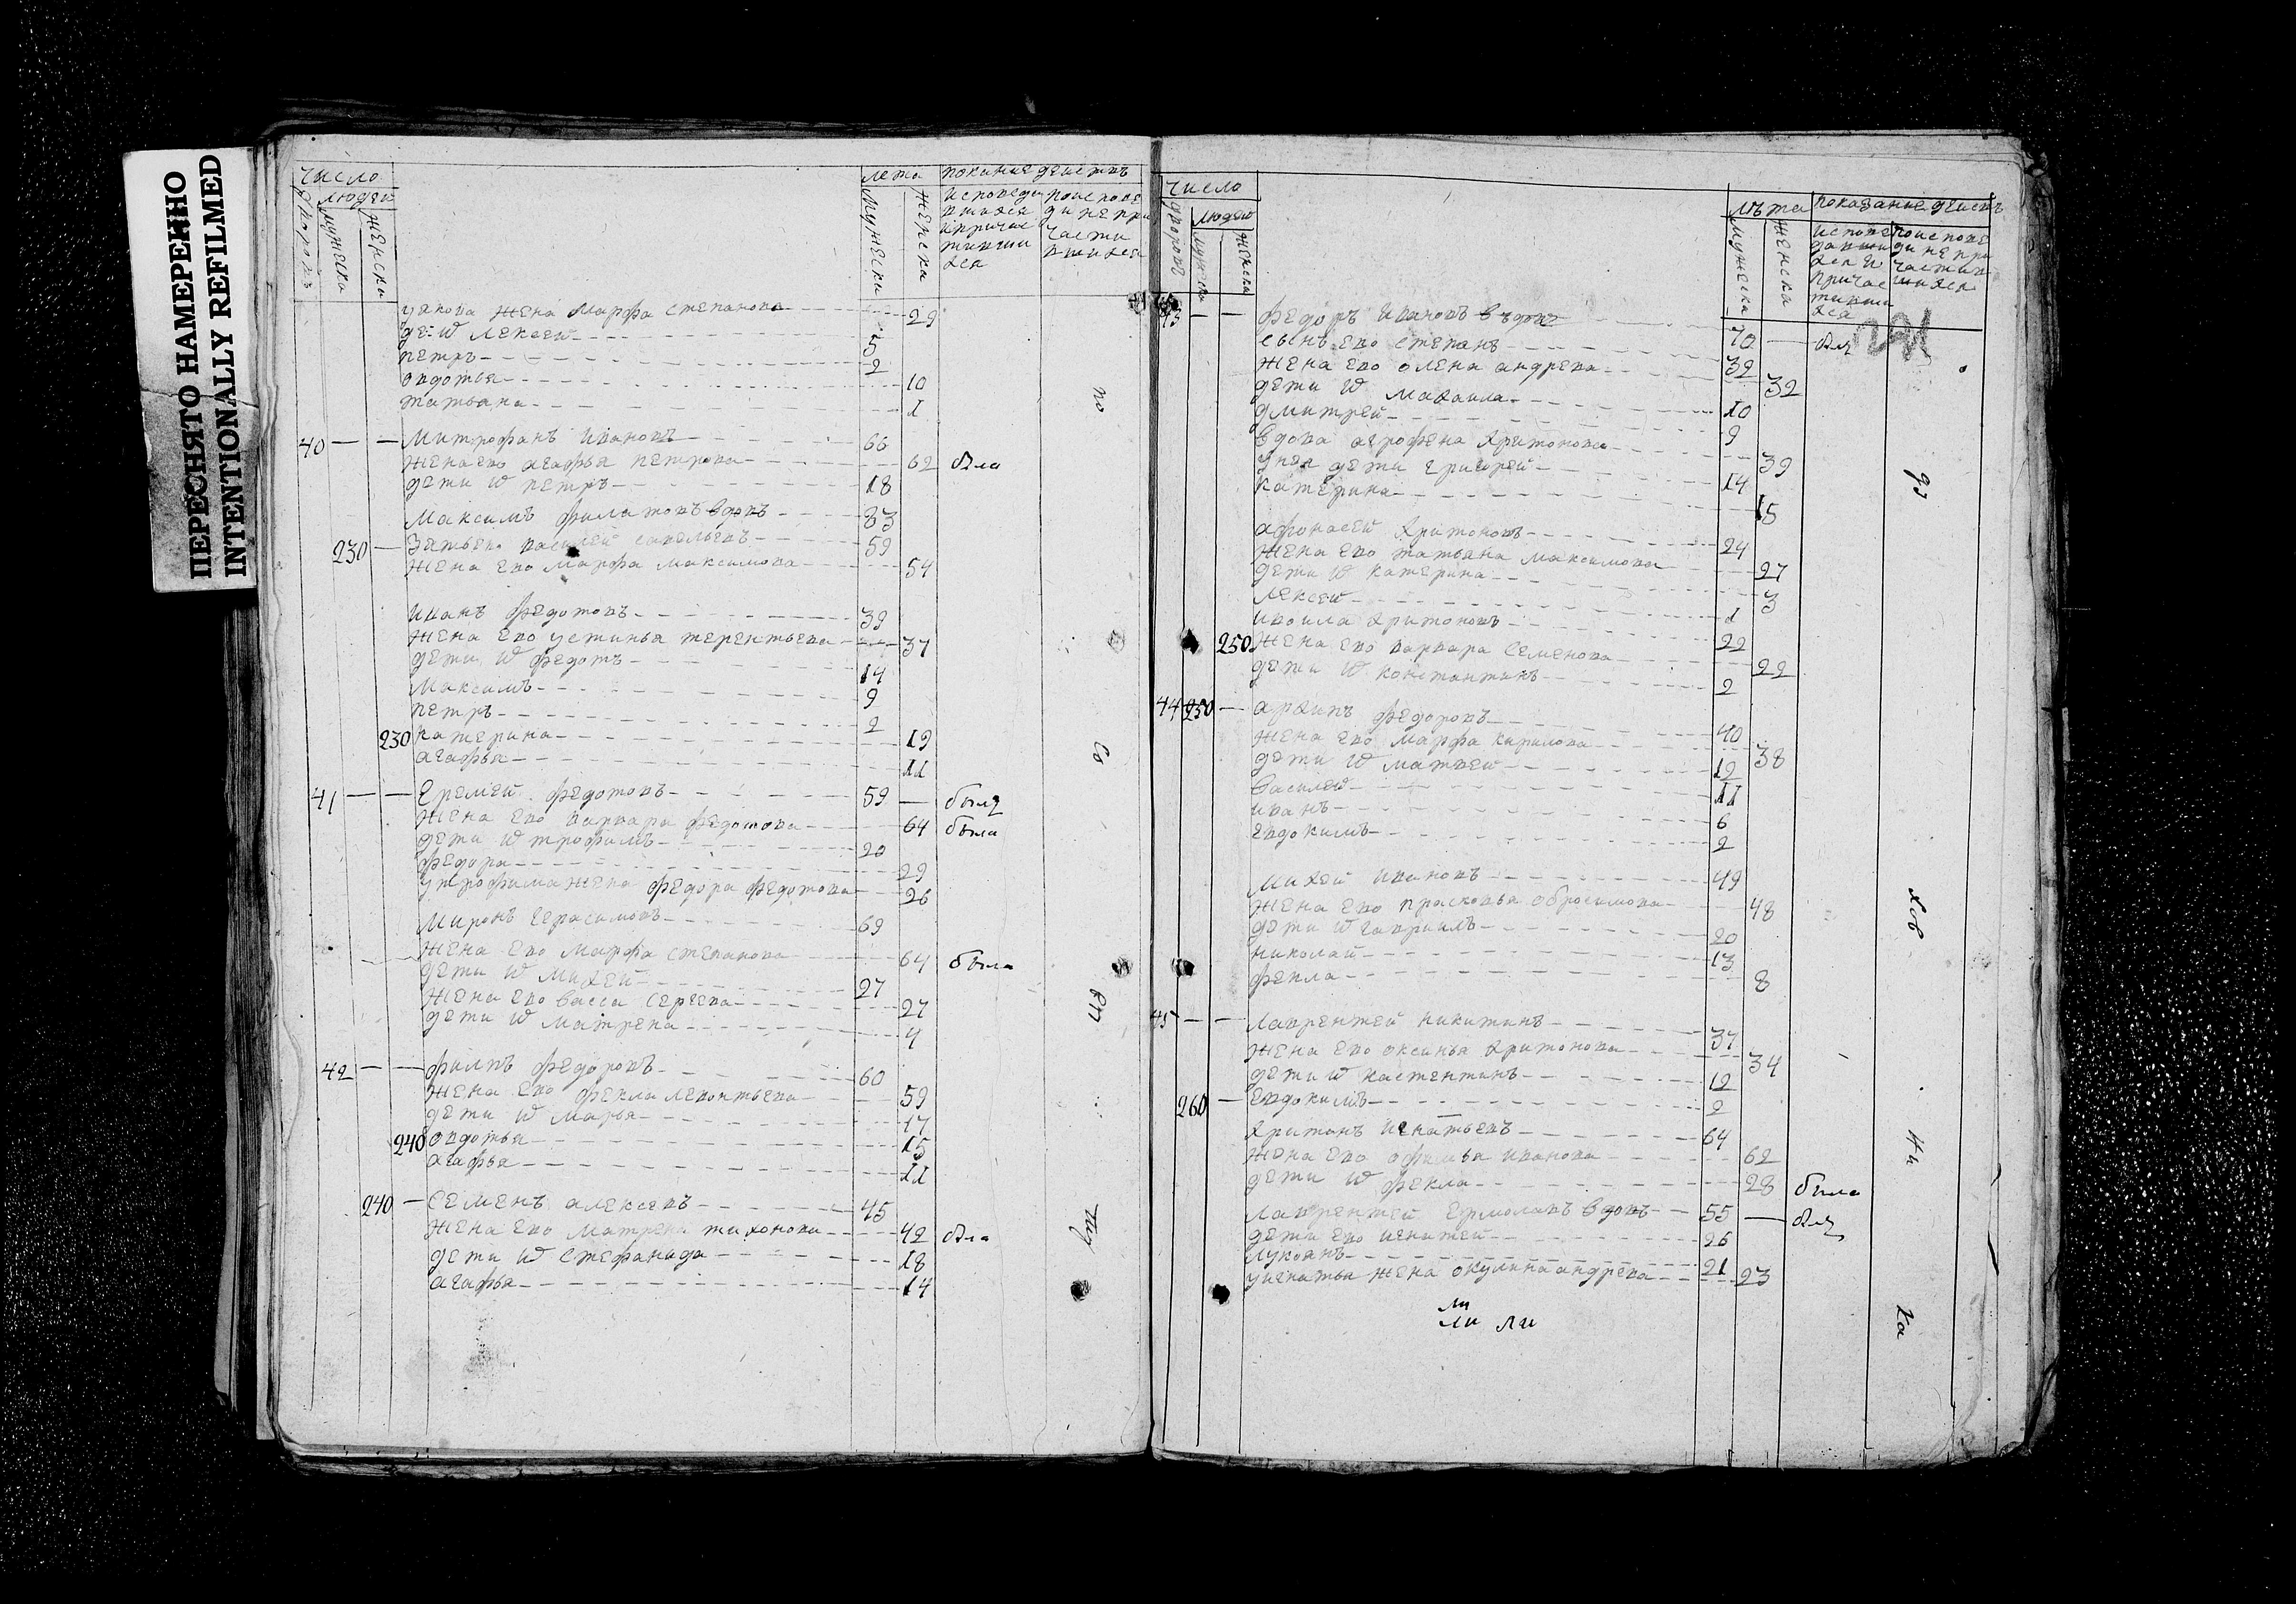 ПЕРЕСНЯТО НАМЕРЕННО
INTENTIONALLY REFILMED
число
людей
дворовъ
мужеска
женска
лета
мужеска
женска
покание деиствъ
исповеда
вшихся
и причас
тивши
хся
по испове
ди не при
части
вшихся
уякова жена марфа степанова 29
де W лексеи 5
петръ 2
овдотья 10
татьяна 1
40 митрофанъ ивановъ 66
жена ево агафья петрова 62 была
дети W петръ 18
максимъ филатовъ вдовъ 83
230 зять ево василей савельевъ 59
жена ево марфа максимова 54
иванъ федотовъ 39
жена ево устинья терентьева 37
дети W федотъ 14
максимъ 9
петръ 2
230 катерина 19
агафья 11
41 еремей федотовъ 59 былъ
жена ево варвара федотова 64 была
дети W трофимъ 20
федора 29
утрофима жена федора федотова 26
миронъ герасимовъ 69
жена ево марфа степанова 64 была
дети W михей 27
жена ево васса сергева 27
дети W матрена 4
42 филипъ федоровъ 60
жена ево фекла левонтьева 59
дети W марья 17
240 овдотья 15
агафья 11
240 семенъ алексевъ 45
жена ево матрена тихонова 42 была
дети W стефанида 18
агафья 14
по
со
число
дворовъ
людей
мужеска
женска
лъта
мужеска
женска
показание деиствъ
испове
давши
хся и
причас
тивши
хся
по испове
ди не при
частив
шихся
43 федоръ ивановъ вдовъ 70 былъ
сынъ ево степанъ 32
жена ево олена андрева 32
дети W михаила 10
дмитрей 9
вдова агрофена харитонова 39
унея дети григорей 14
катерина 15
афонасей харитоновъ 24
жена ево татьяна максимова 27
дети W катерина 3
лексей 1
ивоила харитоновъ 22
250 жена ево варвара семенова 22
дети W константинъ 2
44 250 архипъ федоровъ 40
жена ево марфа кирилова 38
дети W матвей 12
василей 11
иванъ 6
евдокимъ 2
михей ивановъ 49
жена ево прасковья обросимова 48
дети W гавриилъ 20
николай 13
фекла 8
45 лаврентей никитинъ 37
жена ево оксинья харитонова 34
дети W кастентинъ 12
260 евдокимъ 2
харитонъ игнатьевъ 64
жена ево офимья иванова 62
дети W фекла 28 была
лаврентей ермолаевъ вдовъ 55 былъ
дети ево игнатей 26
лукоянъ 21
уигнатья жена окулина андрева 23
ли
ли ли
ду
хов
ни
ка